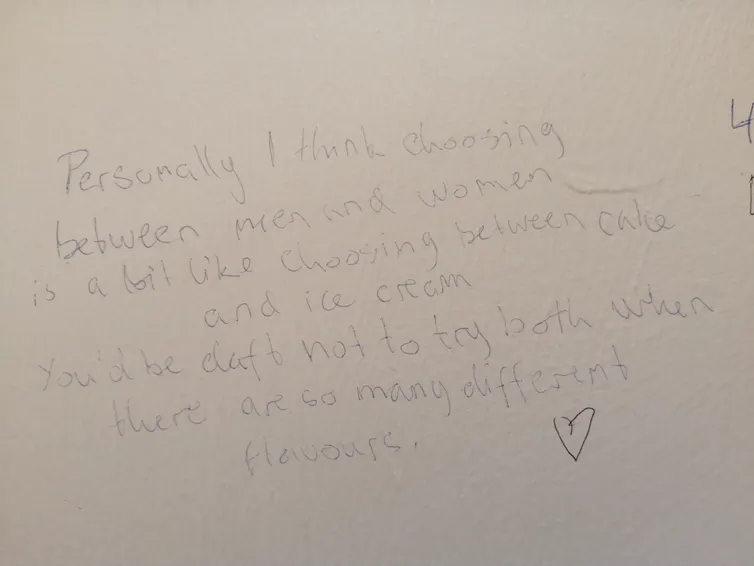 Personally I think choosing
between men and women
is a bit like choosing between cake
and ice cream
You'd be daft not to try both when
there are so many different
flavours.
4